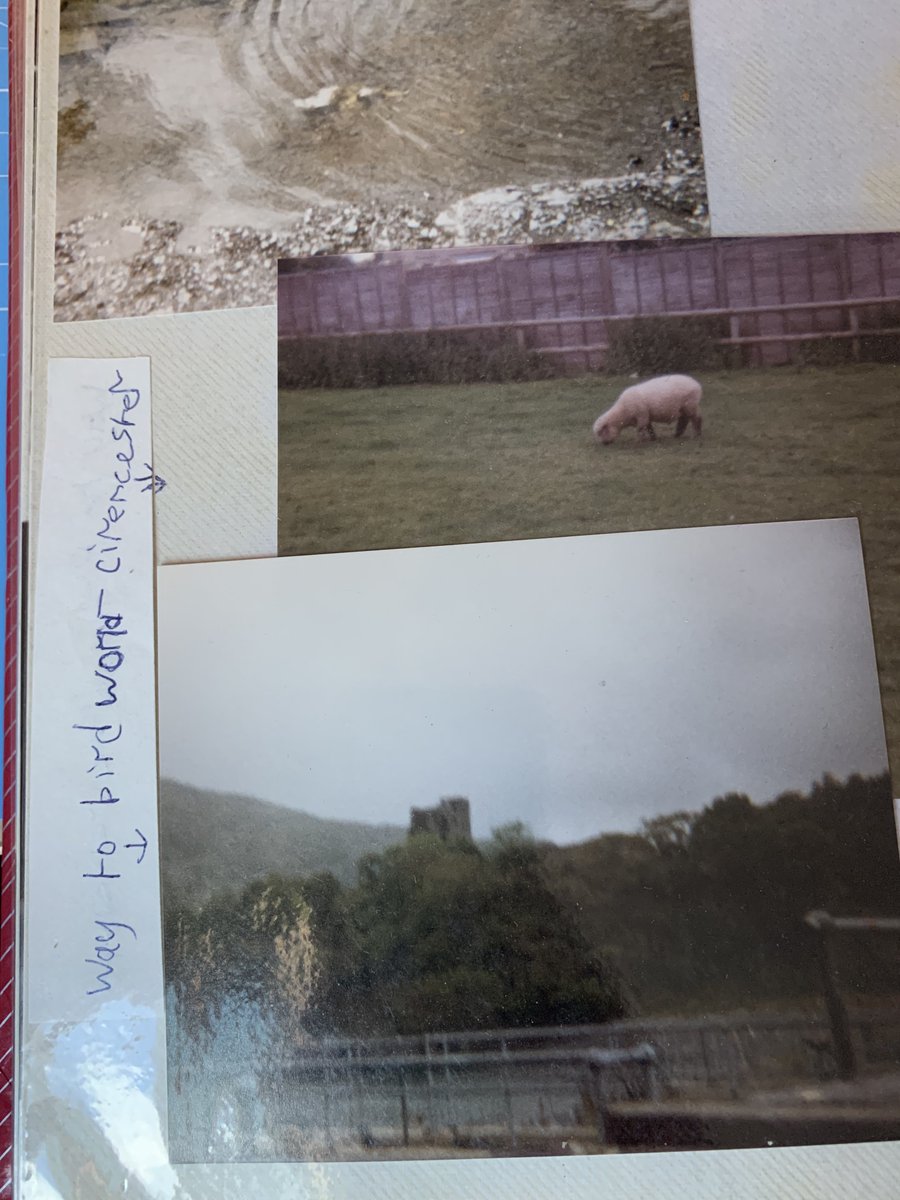 way to bird world - cirencester